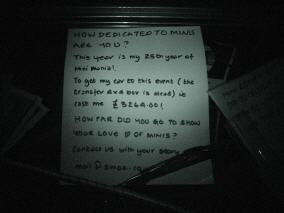 HOW DEDICATED TO MINIS
ARE YOU?
This year is my 25th year of
mini mania!.
To get my car to this event (the
transfer axe box is dead) is
cost me £3264.00!
HOW FAR DID YOU GO TO SHOW
YOUR LOVE OF MINIS?
Contact us with your story
mail @